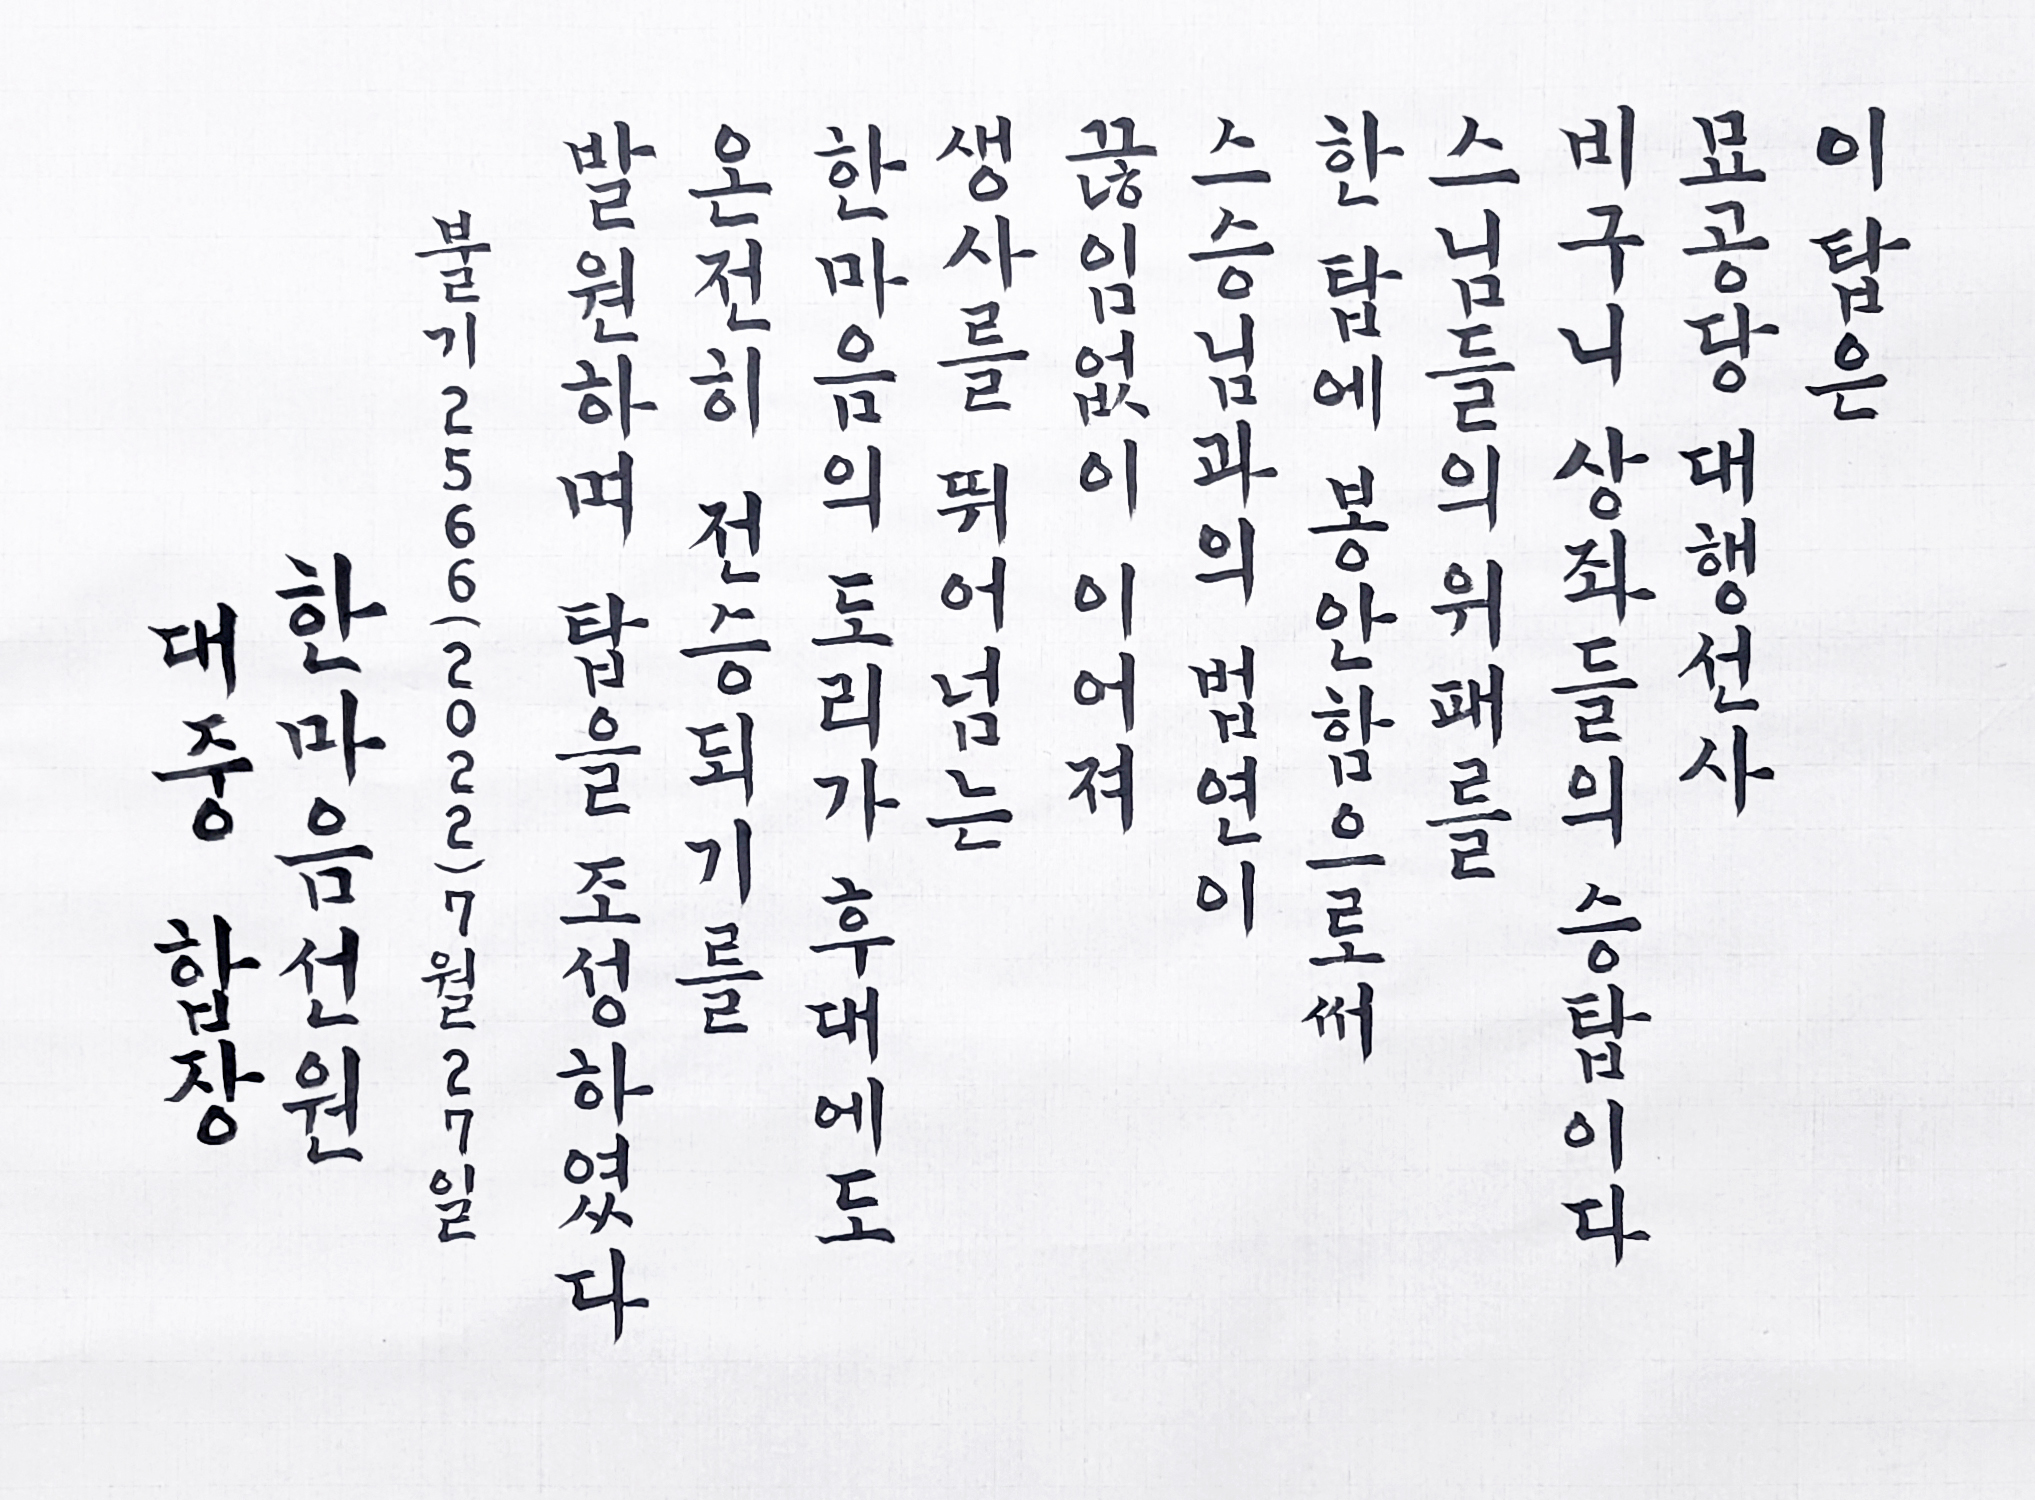 이 탑은
묘공당 대행선사
비구니 상좌들의 승탑이다
스님들의 위패를
한 탑에 봉안함으로써
스승님과의 법연이
끊임없이 이어져
생사를 뛰어넘는
한마음의 도리가 후대에도
온전히 전승되기를
발원하며 탑을 조성하였다
불기2566(2022)7월27일
한마음선원
대중 합장